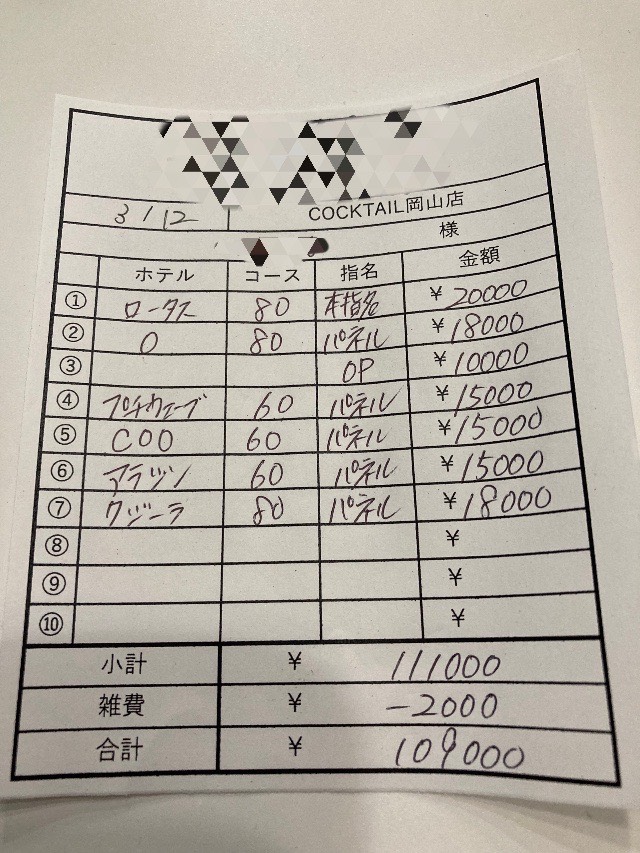 COCKTAIL岡山店
3/12
様
ホテル コース 指名 金額
① ロータス 80 本指名 ¥20000
② O 80 パネル ¥18000
③ OP ¥10000
④ プチウェーブ 60 パネル ¥15000
⑤ COO 60 パネル ¥15000
⑥ アラツン 60 パネル ¥15000
⑦ クジーラ 80 パネル ¥18000
⑧ ¥
⑨ ¥
⑩ ¥
小計 ¥ 111000
雑費 ¥ -2000
合計 ¥ 109000